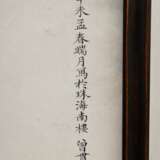 未孟春端月寫於珠海南樓 曾貫